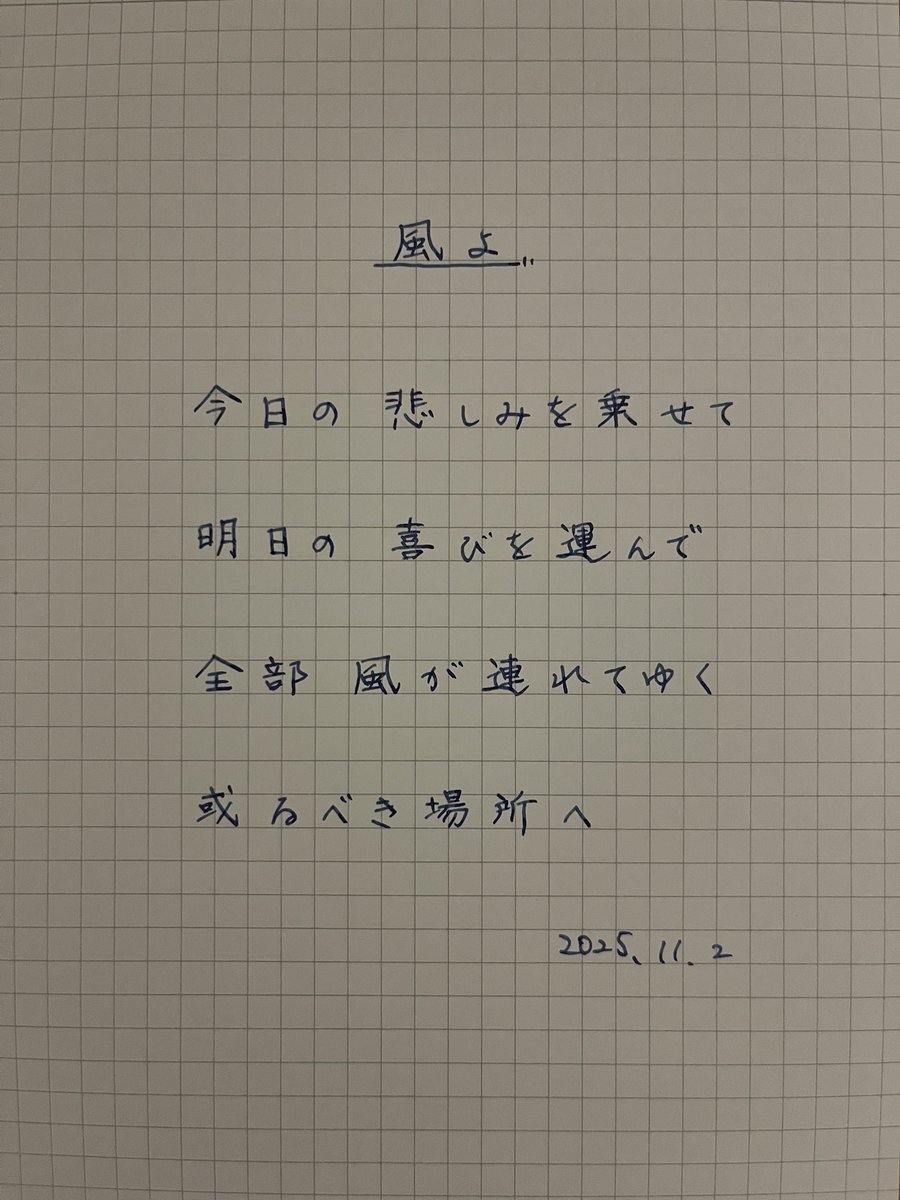 風よ
今日の 悲しみを乗せて
明日の 喜びを運んで
全部 風が連れてゆく
或るべき場所へ
2025.11.2